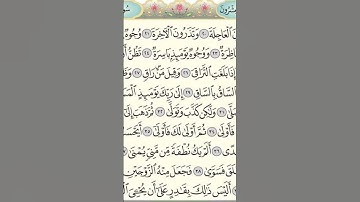 ٱلْعَاجِلَةَ ٢٠ وَتَذَرُونَ ٱلْآخِرَةَ ٢١ وُجُوهٌ
نَاظِرَةٌ ٢٣ وَوُجُوهٌ يَوْمَئِذٍۭ بَاسِرَةٌ ٢٤ تَظُنُّ
إِذَا بَلَغَتِ ٱلتَّرَاقِيَ ٢٦ وَقِيلَ مَنْ رَاقٍ ٢٧
ٱلسَّاقُ بِٱلسَّاقِ ٢٩ إِلَىٰ رَبِّكَ يَوْمَئِذٍ
صَلَّىٰ ٣١ وَلَٰكِن كَذَّبَ وَتَوَلَّىٰ ٣٢ ثُمَّ ذَهَبَ
فَأَوْلَىٰ ٣٤ ثُمَّ أَوْلَىٰ لَكَ فَأَوْلَىٰ ٣٥ أَيَحْسَبُ
أَلَمْ يَكُ نُطْفَةً مِّن مَّنِيٍّ يُمْنَىٰ
فَسَوَّىٰ ٣٨ فَجَعَلَ مِنْهُ ٱلزَّوْجَيْنِ
أَلَيْسَ ذَٰلِكَ بِقَٰدِرٍ عَلَىٰٓ أَن يُحْـِۧيَ